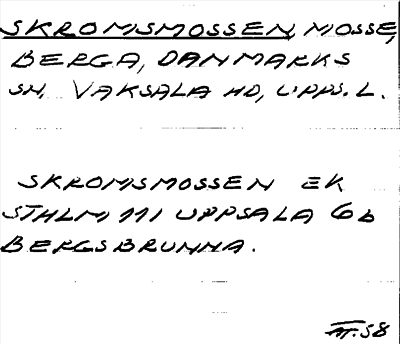 SKROMSMOSSEN, MOSSE,
BERGA, DANMARKS
SN, VAKSALA HD, UPPS. L.
SKROMSMOSSEN EK
STHLM 111 UPPSALA 6b
BERGSBRUNNA.